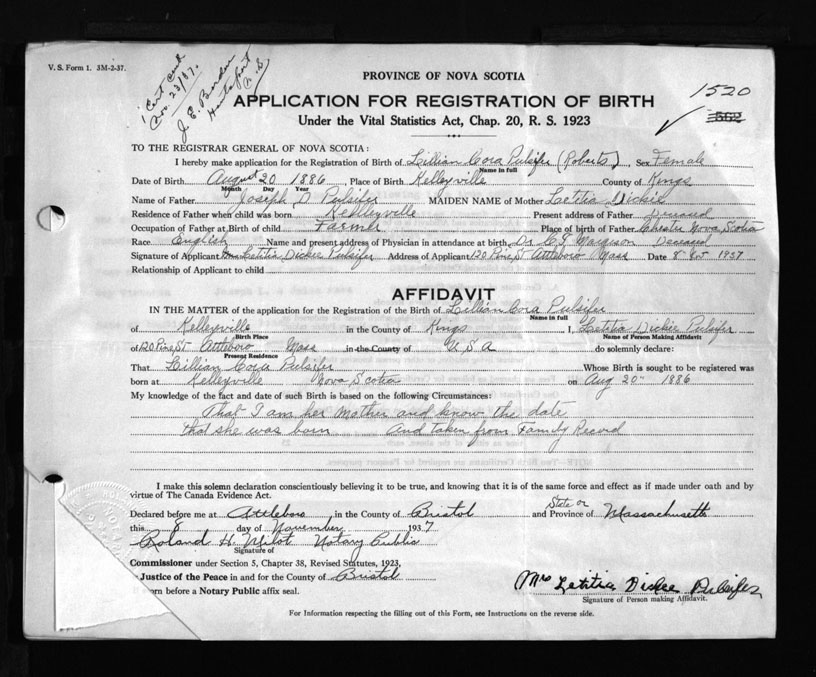 V. S. Form 1. 3M-2-37.
Nov. 23/37.
J. E.
Hantsport
N. S
PROVINCE OF NOVA SCOTIA
1520
APPLICATION FOR REGISTRATION OF BIRTH
562
Under the Vital Statistics Act, Chap. 20, R. S. 1923
TO THE REGISTRAR GENERAL OF NOVA SCOTIA:
I hereby make application for the Registration of Birth of Lillian Cora Pulsifer (Roberts), Sex Female
Name in full
Date of Birth August 20 1886, Place of Birth Kelleyville County of Kings
Month Day Year
Name of Father Joseph D Pulsifer MAIDEN NAME of Mother Letitia Dickie
Residence of Father when child was born Kelleyville Present address of Father
Occupation of Father at Birth of child Farmer Place of birth of Father Chester Nova Scotia
Race English Name and present address of Physician in attendance at birth Dr. Deceased
Signature of Applicant Letitia Dickie Pulsifer Address of Applicant 120 Pine St Attleboro Mass Date 8 1937
Relationship of Applicant to child
AFFIDAVIT
IN THE MATTER of the application for the Registration of the Birth of Lillian Cora Pulsifer
Name in full
of Kelleyville in the County of Kings I, Letitia Dickie Pulsifer
Birth Place Name of Person Making Affidavit
of 120 Pine St Attleboro Mass in the County of U.S.A do solemnly declare:
Present Residence
That Lillian Cora Pulsifer Whose Birth is sought to be registered was
born at Kelleyville Nova Scotia on Aug 20" 1886
My knowledge of the fact and date of such Birth is based on the following Circumstances:
That I am her Mother and know the date
that she was born And taken from Family Record
I make this solemn declaration conscientiously believing it to be true, and knowing that it is of the same force and effect as if made under oath and by
virtue of The Canada Evidence Act.
State or
Declared before me at Attleboro in the County of Bristol and Province of Massachusetts
this 8 day of November 1937
Roland H. Milot Notary Public
Signature of
Commissioner under Section 5, Chapter 38, Revised Statutes, 1923,
Justice of the Peace in and for the County of Bristol
before a Notary Public affix seal.
Mrs Letitia Dickie Pulsifer
Signature of Person making Affidavit.
For Information respecting the filling out of this Form, see Instructions on the reverse side.